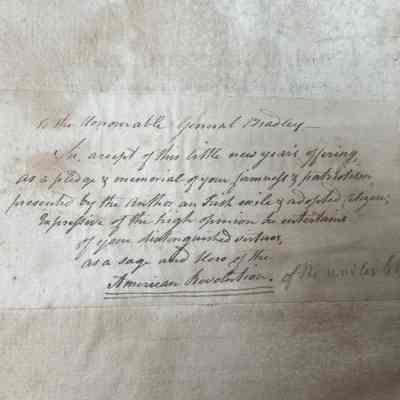 To the Honourable General Bradley —
Sir, accept of this little new year's offering,
as a pledge & memorial of your firmness & patriotism
presented by the Author, an Irish exile & adopted citizen;
Expressive of the high opinion he entertains
of your distinguished virtues,
as a sage and Hero of the
American Revolution. of the